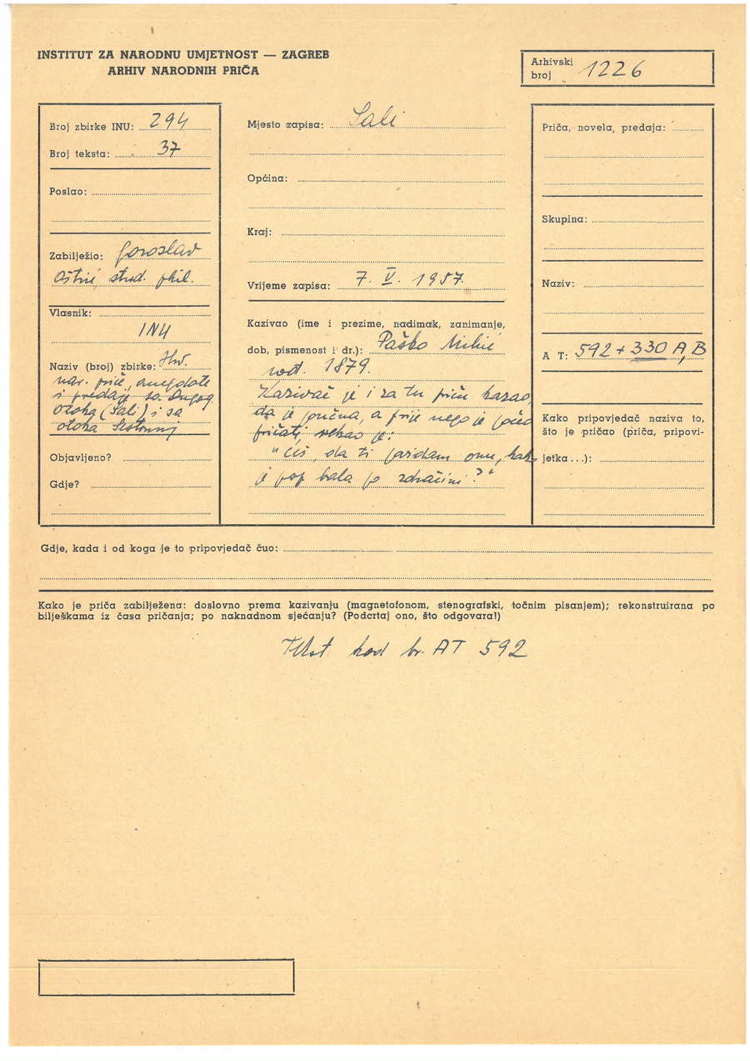 INSTITUT ZA NARODNU UMJETNOST — ZAGREB
ARHIV NARODNIH PRIČA
Arhivski broj 1226
Broj zbirke INU: 294
Broj teksta: 37
Poslao:
Zabilježio:
Oštrić, stud. phil.
Vlasnik:
INU
Naziv (broj) zbirke: Hrv.
nar. priče, anegdote
i predaje sa Dugog
otoka (Sali) i sa
otoka
Objavljeno?
Gdje?
Mjesto zapisa: Sali
Općina:
Kraj:
Vrijeme zapisa: 7. V. 1957.
Kazivao (ime i prezime, nadimak, zanimanje,
dob, pismenost i dr.): Paško
rođ. 1879.
Kazivač je i za tu priču kazao,
da je, a prije nego je počeo
pričati, rekao je:
"ćeš, da ti onu, kako
je pop po
Priča, novela, predaja:
Skupina:
Naziv:
A T: 592 + 330 A, B
Kako pripovjedač naziva to,
što je pričao (priča, pripovi-
jetka...):
Gdje, kada i od koga je to pripovjedač čuo:
Kako je priča zabilježena: doslovno prema kazivanju (magnetofonom, stenografski, točnim pisanjem); rekonstruirana po
bilješkama iz časa pričanja; po naknadnom sjećanju? (Podcrtaj ono, što odgovara!)
Tekst kod br. AT 592